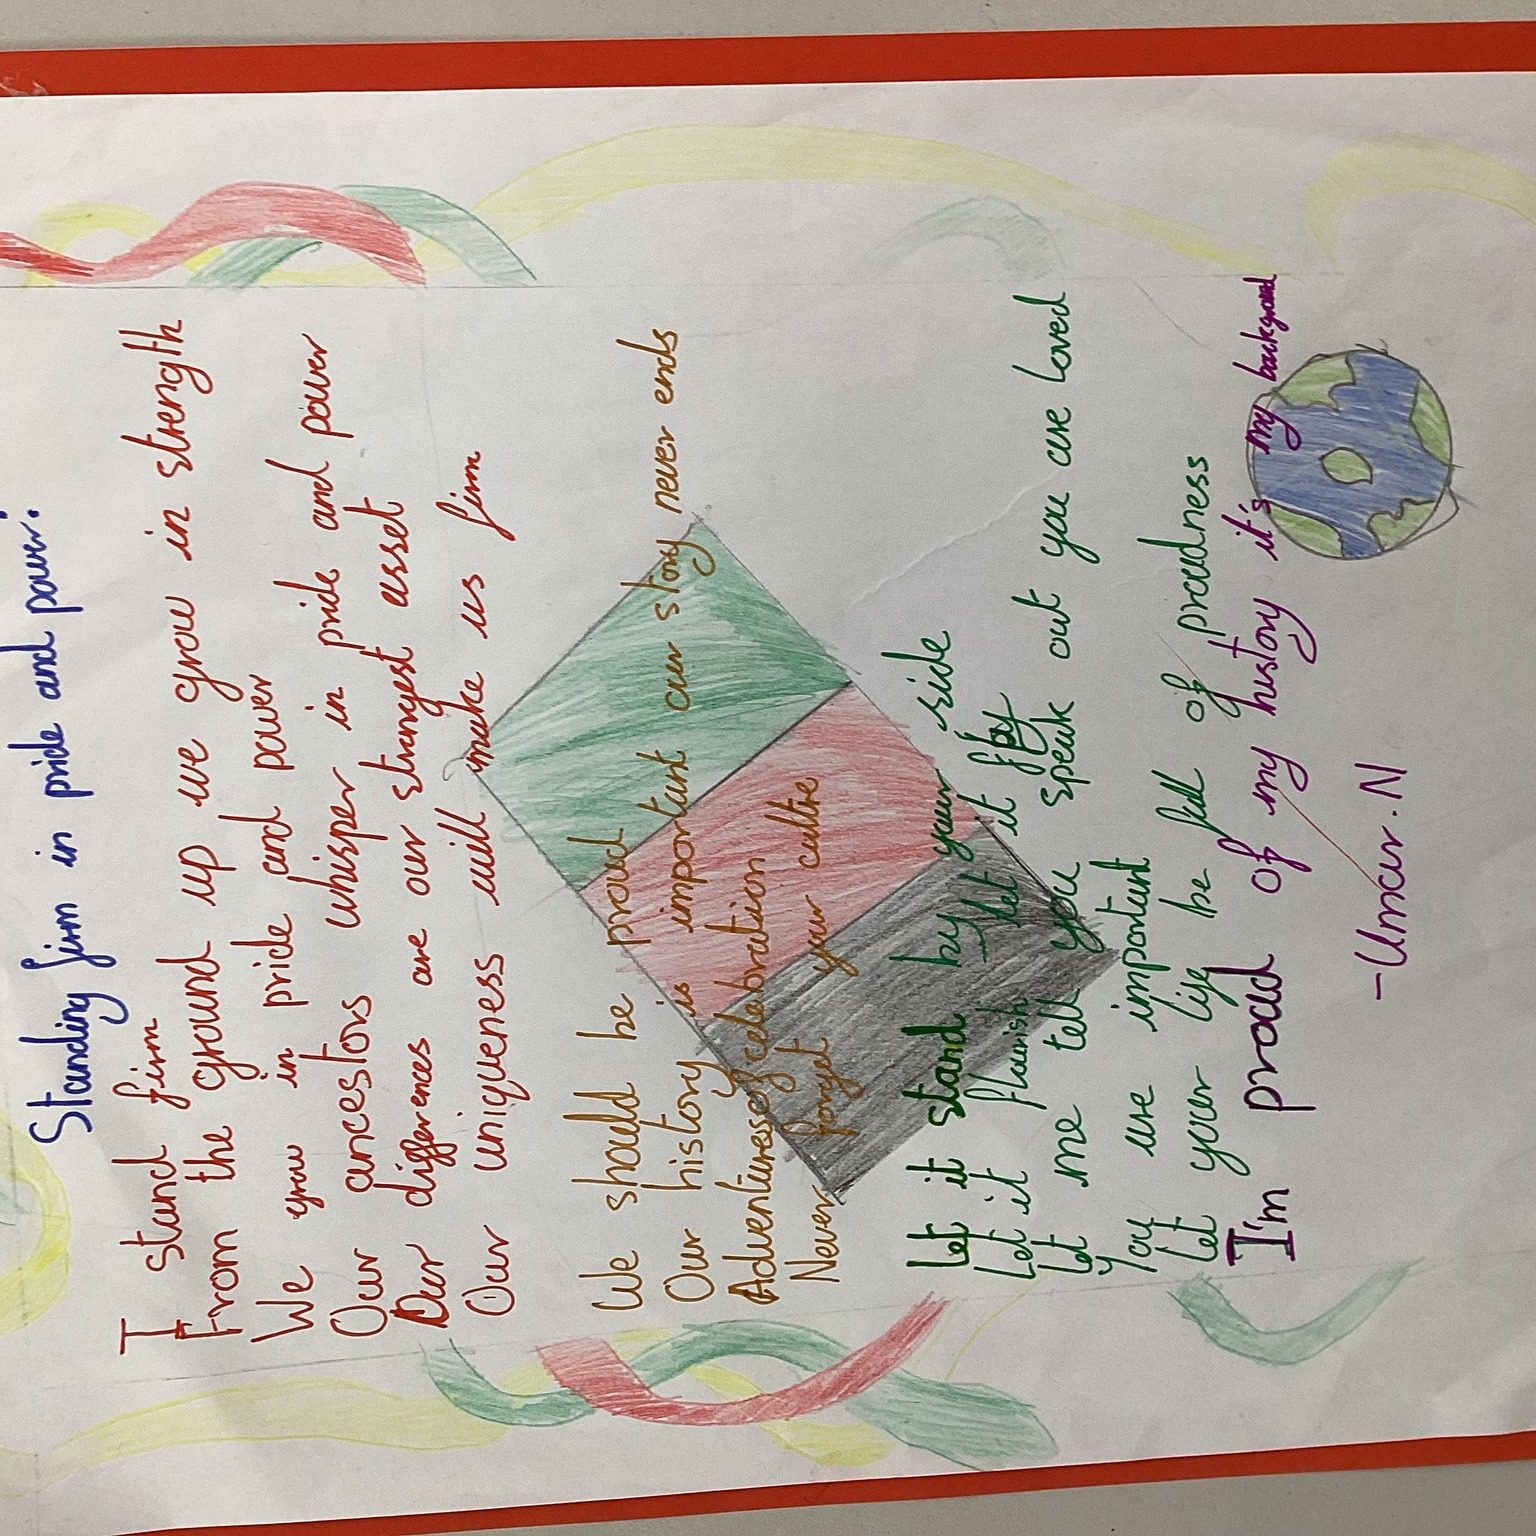 Standing firm in pride and power:
I stand firm
From the ground up we grow in strength
We grow in pride and power
Our ancestors whisper in pride and power
Our differences are our strongest asset
Our uniqueness will make us firm
We should be proud
Our history is important our story never ends
Adventuresey celebration
Never forget your cultre
Let it stand by your side
Let it flourish let it fly
Let me tell you speak out you are loved
You are important
Let your life be full of proudness
I'm proud of my history it's my background
- Umar . N